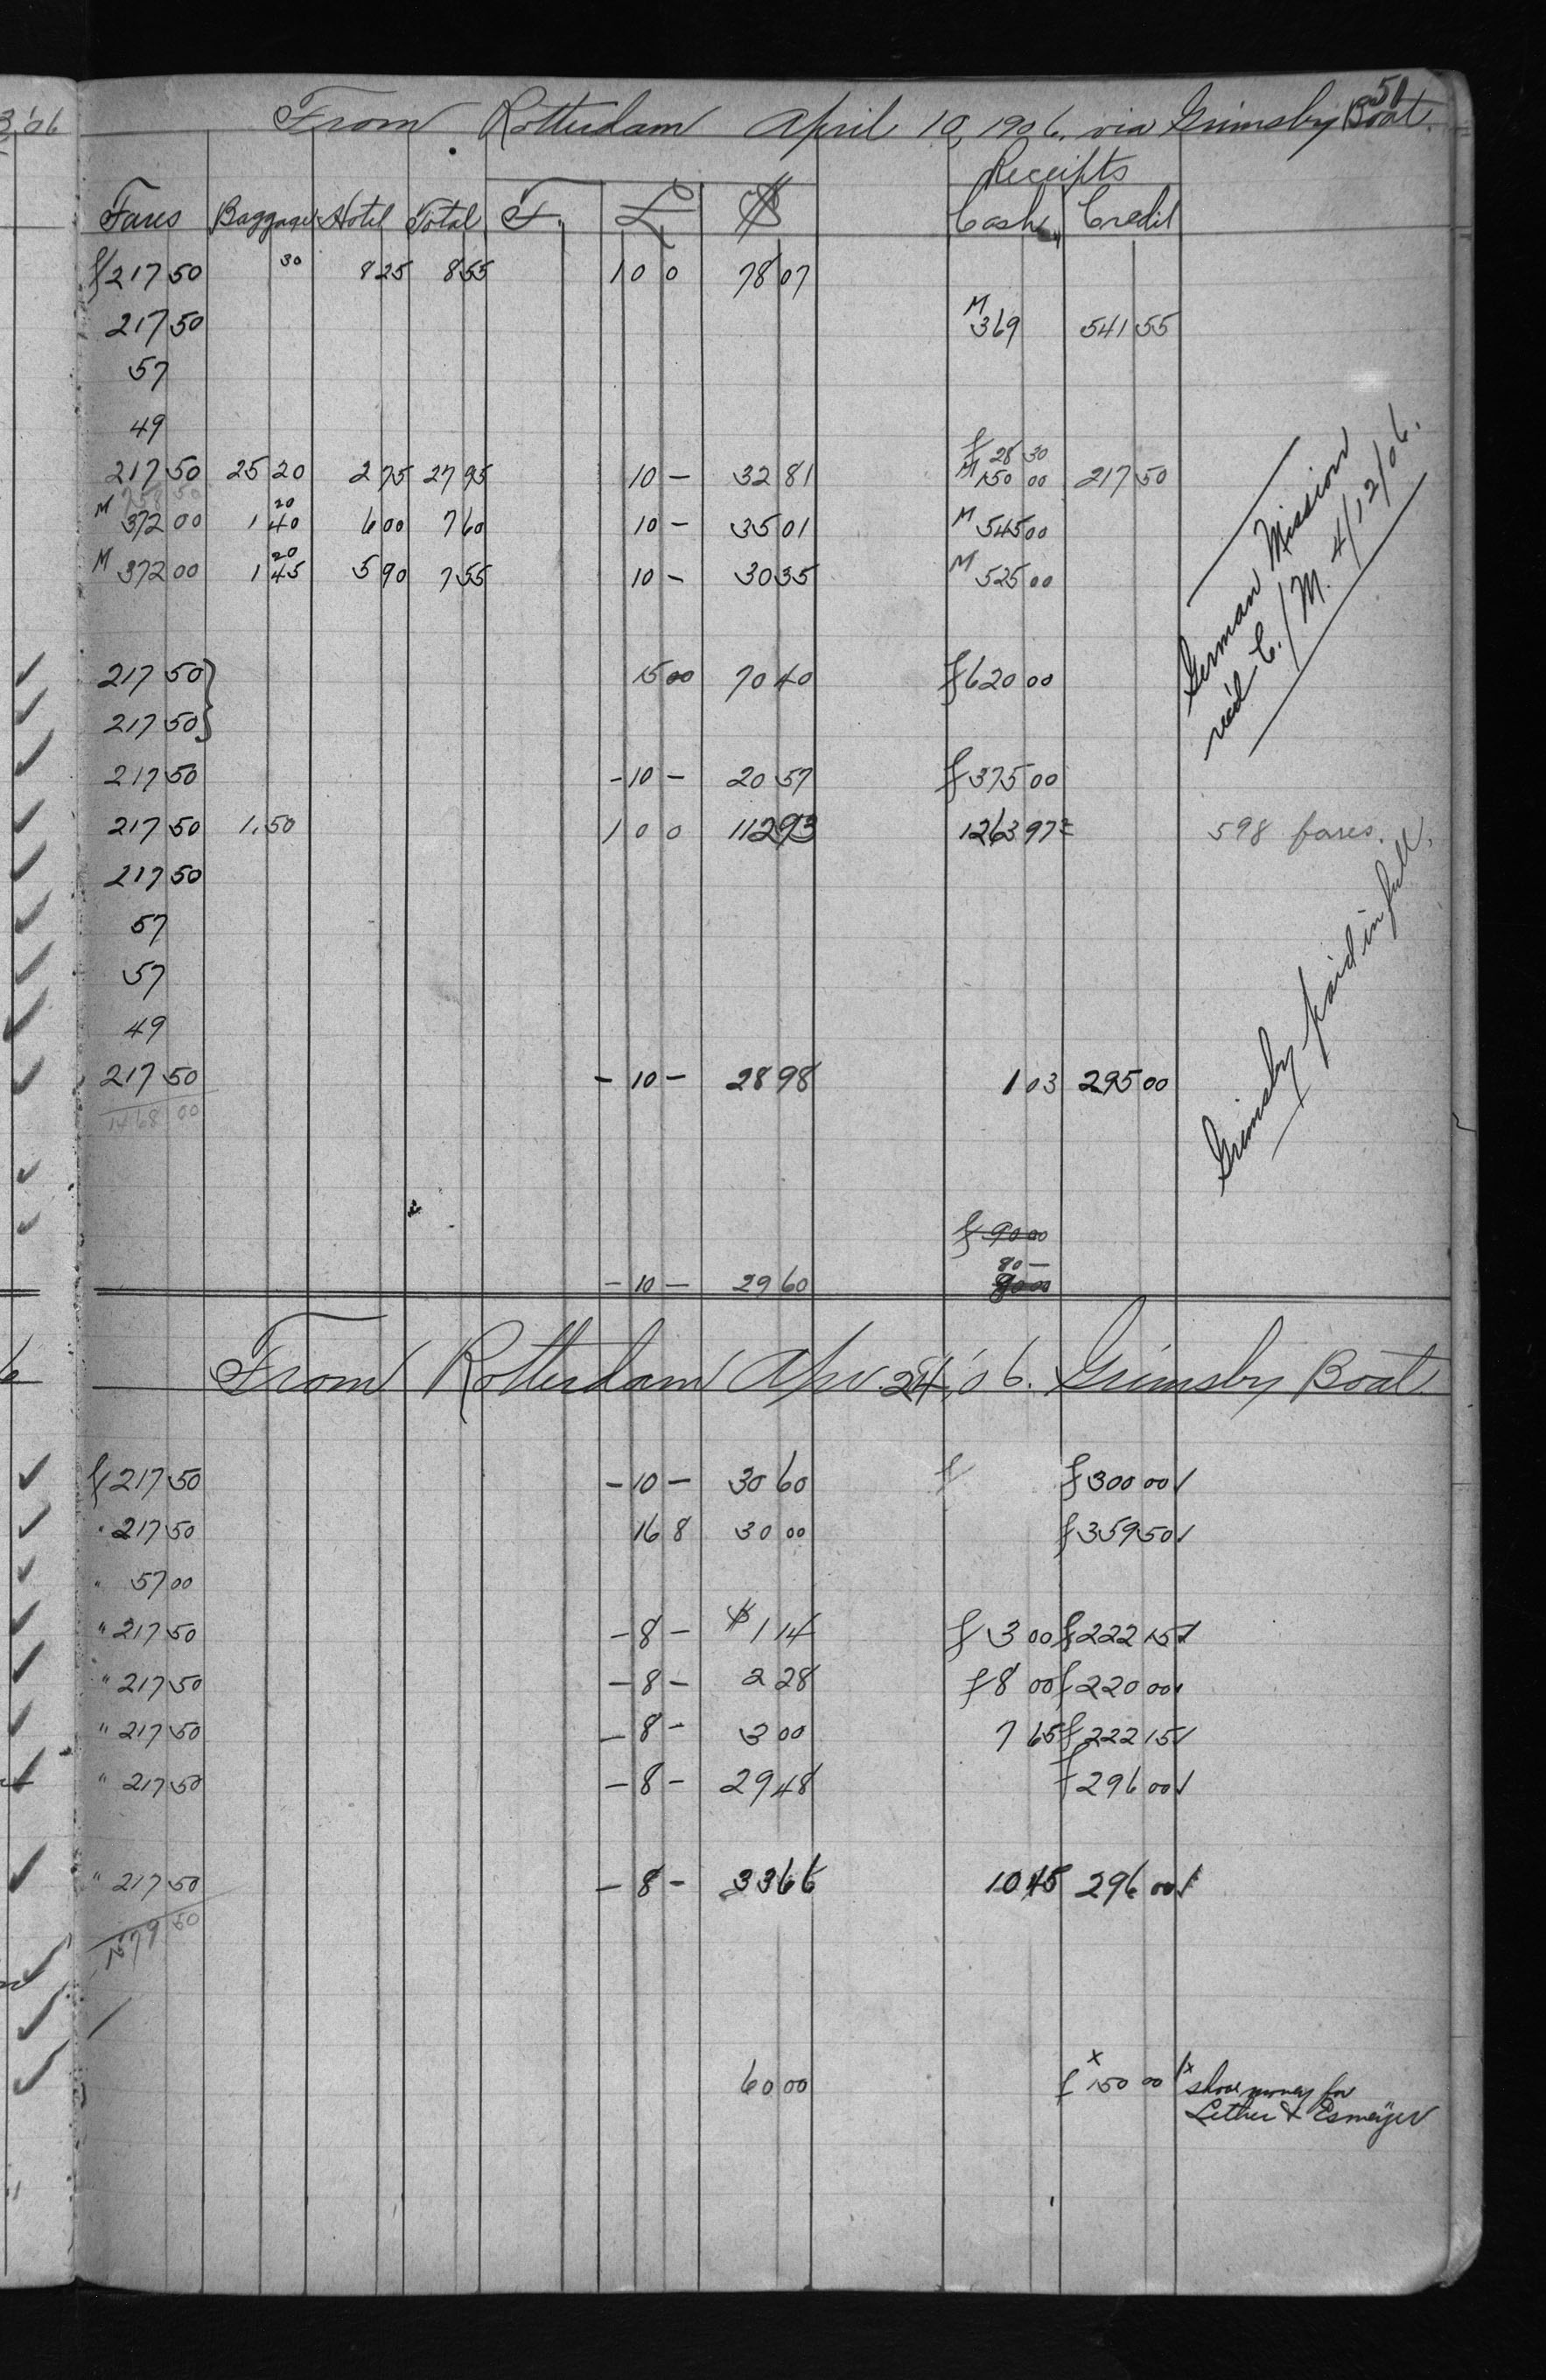 3,'06
50
From Rotterdam April 10, 1906. via Grimsby Boat.
Receipts
Fares Baggage Hotel Total F. £ $ Cash Credit
f 217 50 30 8 25 8 55 1 0 0 78 07
217 50 M 369 541 55
57
49
f 28 30
217 50 25 20 2 75 27 95 10 – 32 81 M 150 00 217 50
758 50
20
M 372 00 1 40 6 00 7 60 10 – 35 01 M 545 00
20
M 372 00 1 45 5 90 7 55 10 – 30 35 M 525 00
German Mission
rec'd C./M. 4/12/06.
217 50 } 15 00 70 40 f 620 00
217 50 }
217 50 – 10 – 20 57 f 375 00
217 50 1.50 1 0 0 112 93 1263 97 598 fares.
217 50
57
57
49
217 50 – 10 – 28 98 1 03 295 00
1468 00
Grimsby paid in full.
f 90 00
80 –
90 00
– 10 – 29 60
From Rotterdam Apr. 24, '06. Grimsby Boat
f 217 50 – 10 – 30 60 f f 300 00 /
" 217 50 16 8 30 00 f 359 50 /
" 57 00
" 217 50 – 8 – $ 1 14 f 3 00 f 222 15 /
" 217 50 – 8 – 2 28 f 8 00 f 220 00 /
" 217 50 – 8 – 3 00 7 65 f 222 15 /
" 217 50 – 8 – 29 48 f 296 00 /
" 217 50 – 8 – 33 66 10 45 296 00 /
1579 50
60 00 f x 150 00 / x show money for
Lether & Esmeijer